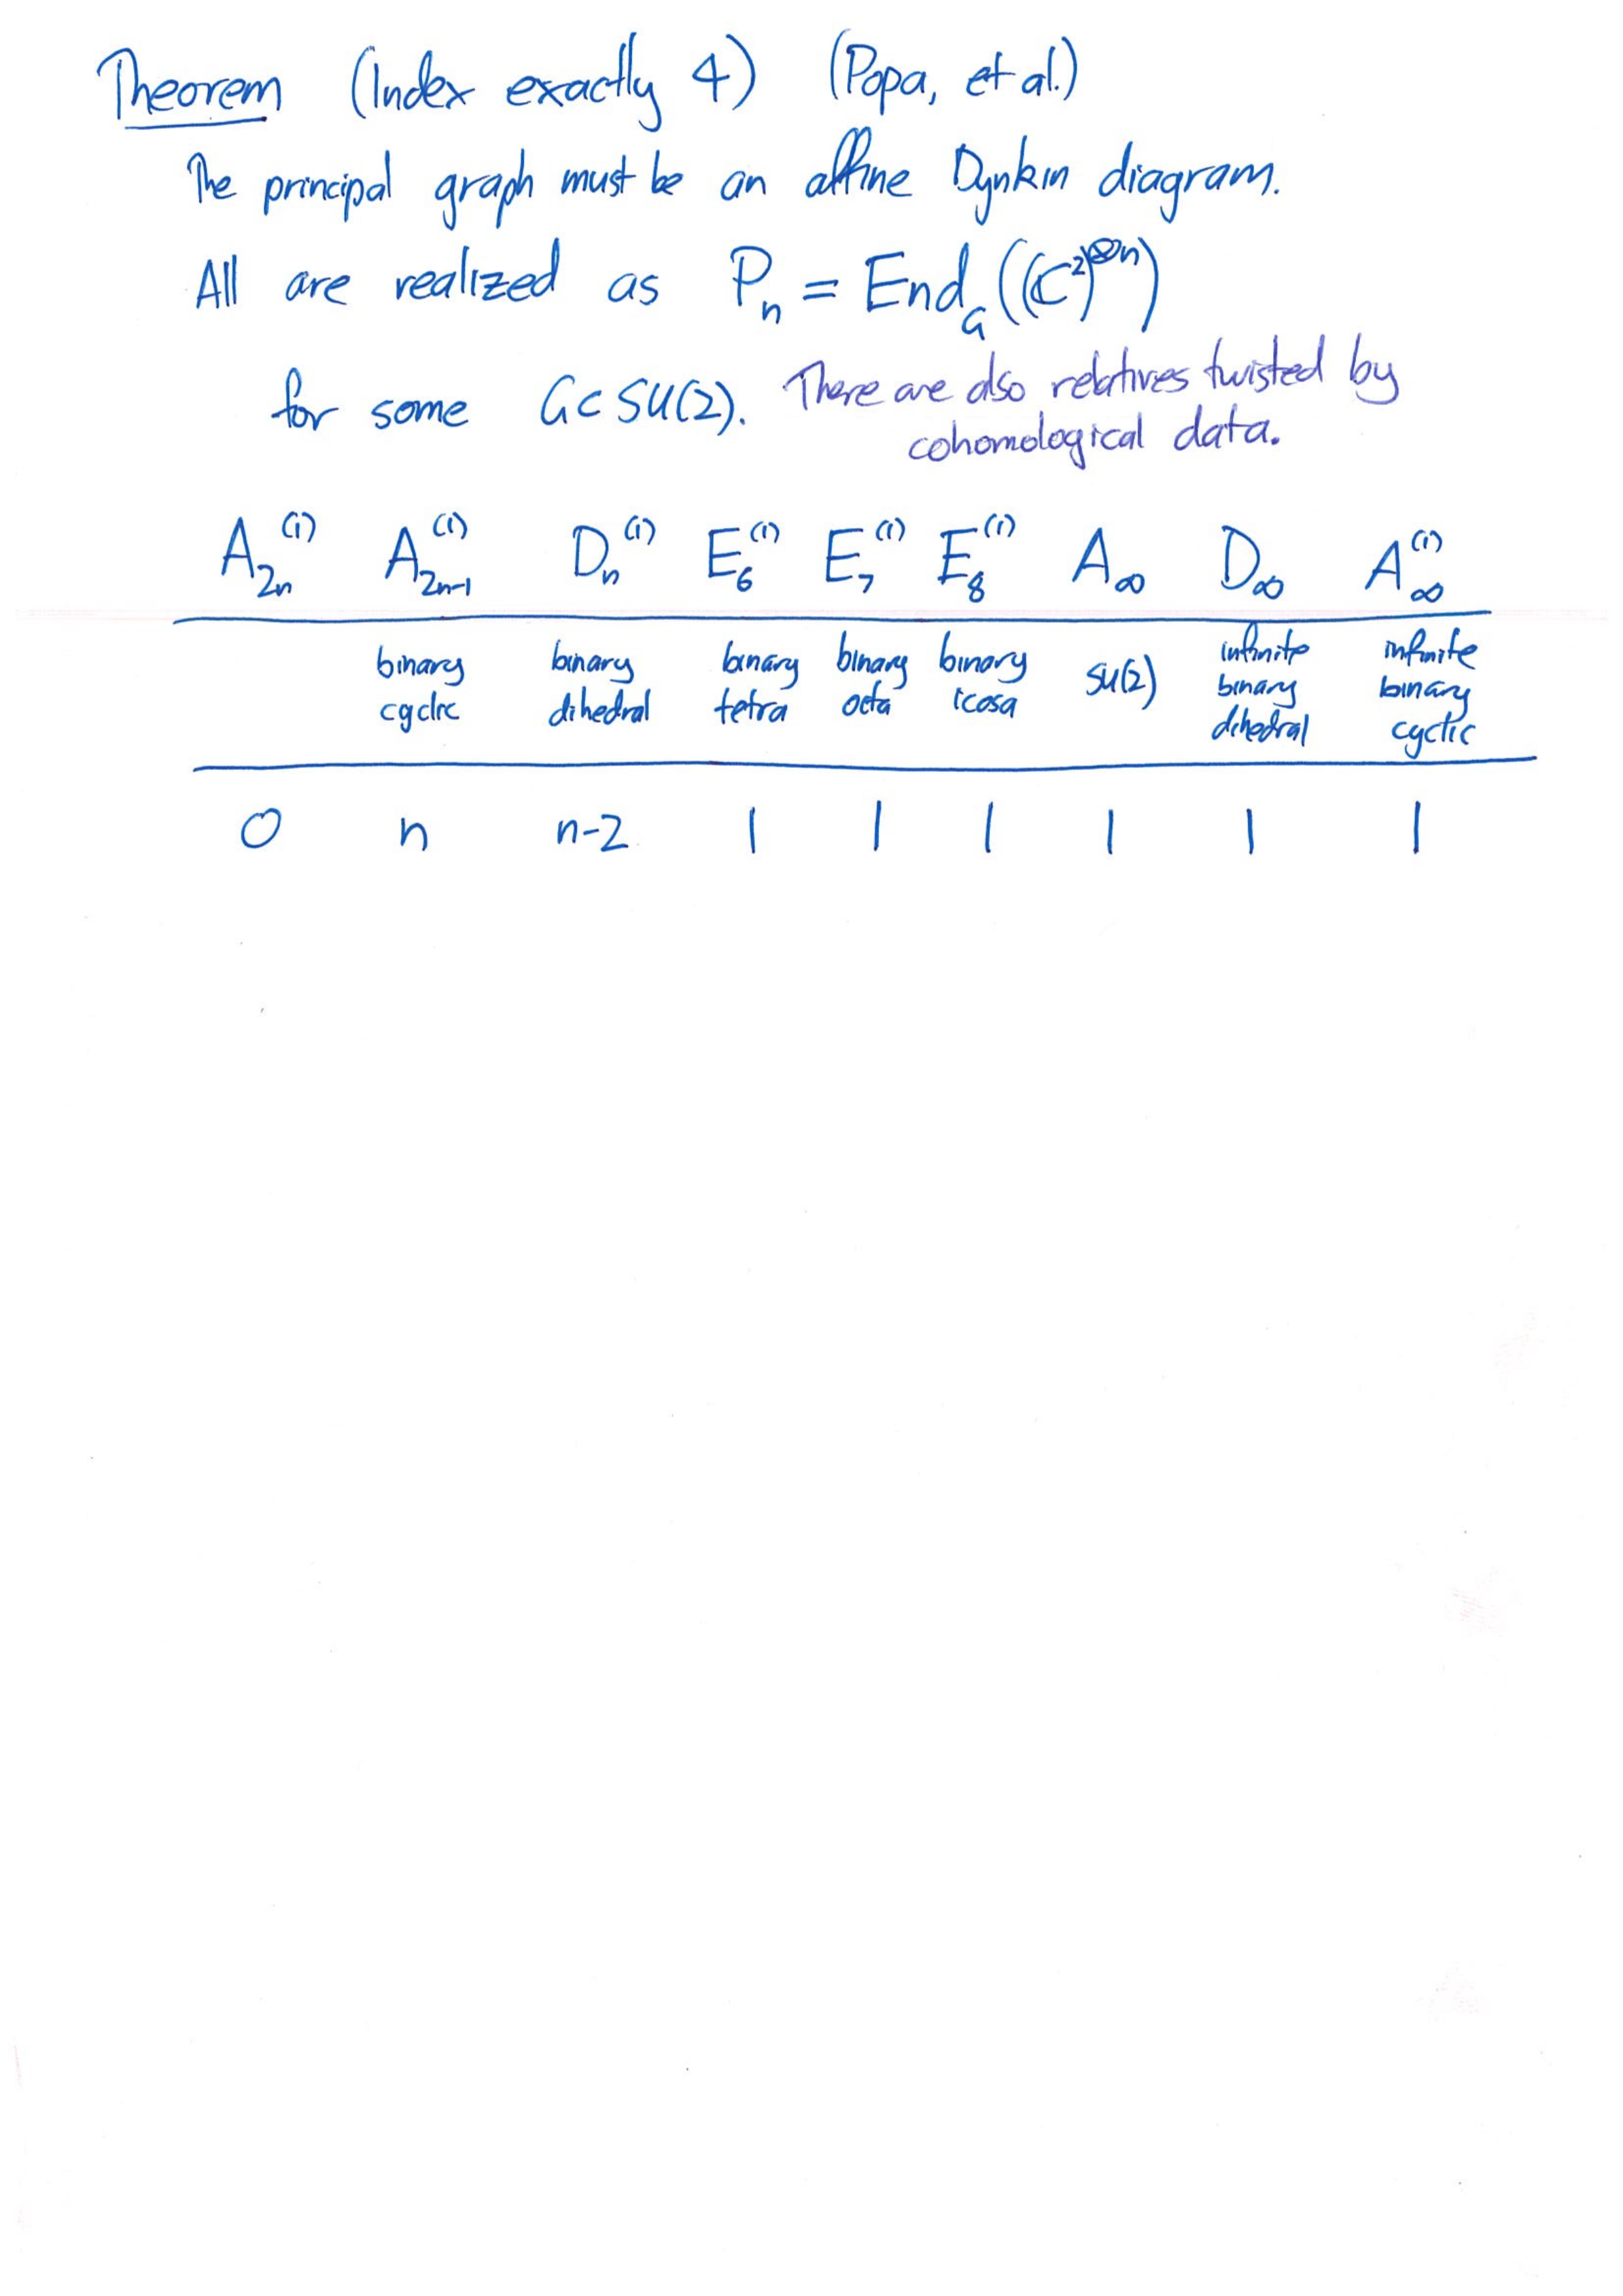 Theorem (Index exactly 4) (Popa, et al.)
The principal graph must be an affine Dynkin diagram.
All are realized as Pₙ = End_G((ℂ²)^{⊗n})
for some G⊂SU(2). There are also relatives twisted by
cohomological data.
A_{2n}^{(1)} A_{2n-1}^{(1)} D_n^{(1)} E_6^{(1)} E_7^{(1)} E_8^{(1)} A_∞ D_∞ A_∞^{(1)}
binary cyclic binary dihedral binary tetra binary octa binary icosa SU(2) infinite binary dihedral infinite binary cyclic
0 n n-2 1 1 1 1 1 1